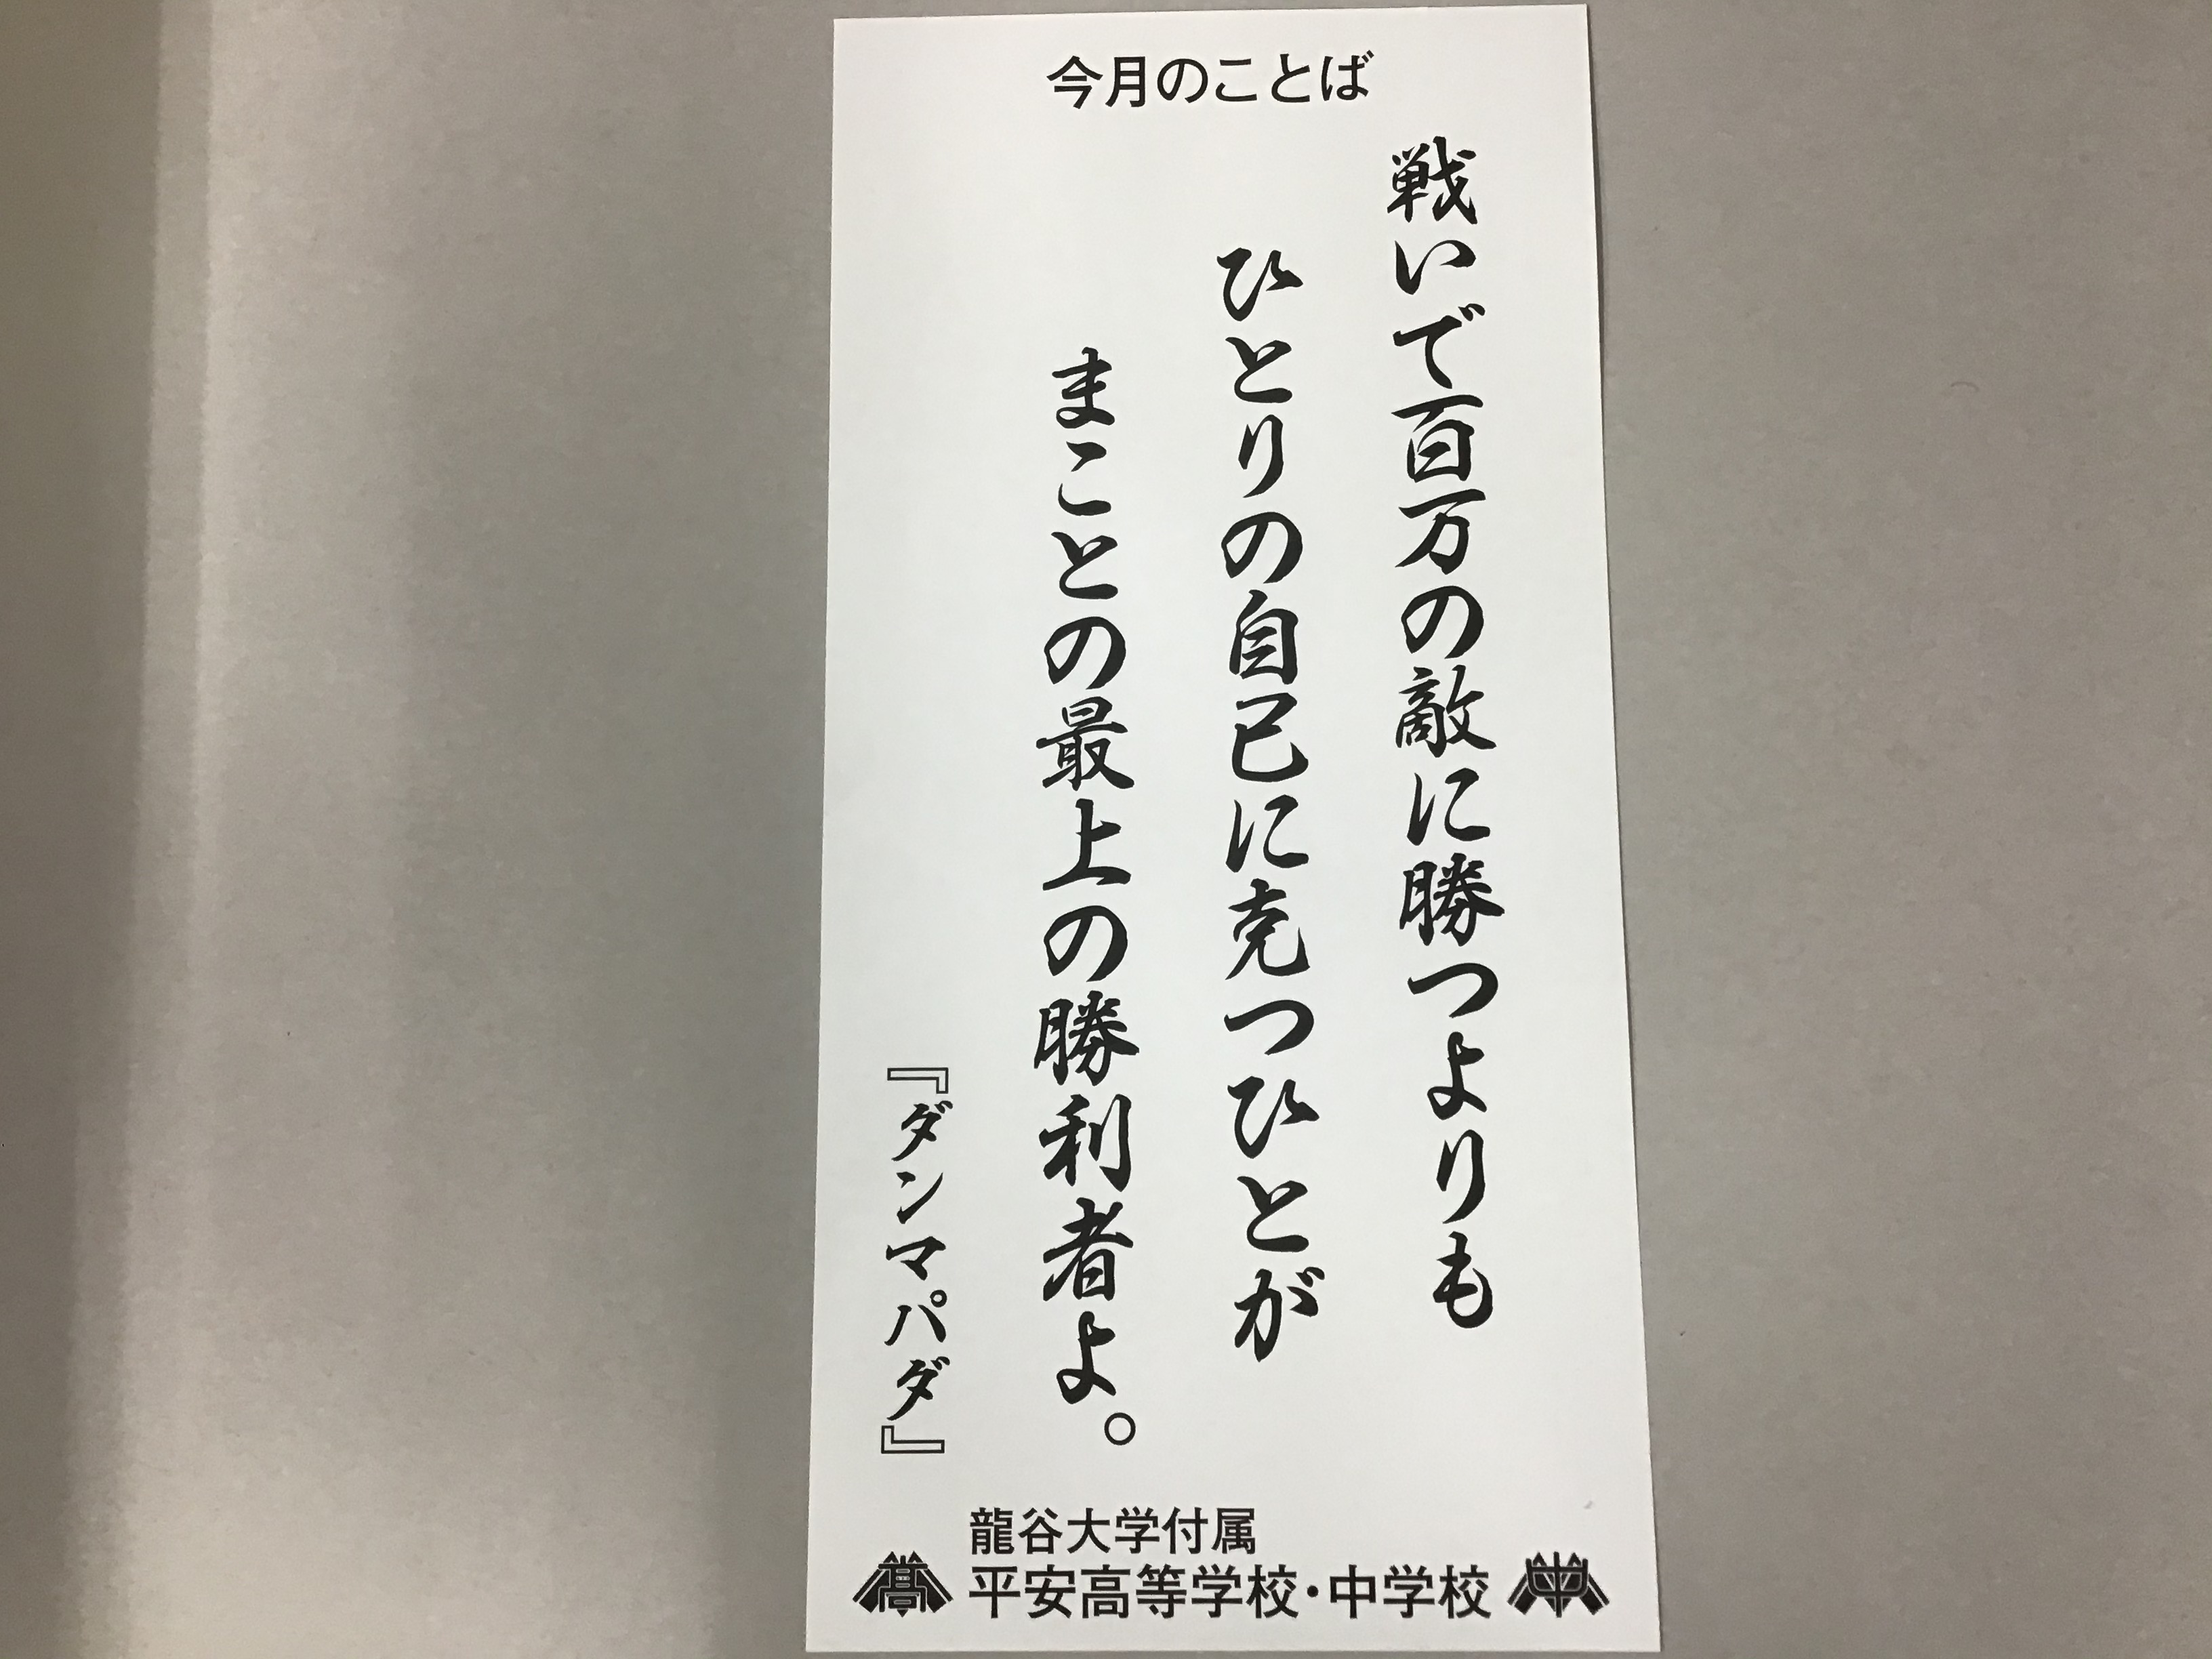 今月のことば
戦いで百万の敵に勝つよりも
ひとりの自己に克つひとが
まことの最上の勝利者よ。
『ダンマパダ』
龍谷大学付属
高 平安高等学校・中学校 中